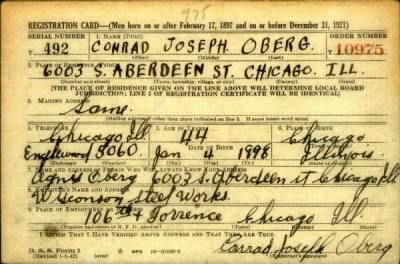 975
REGISTRATION CARD—(Men born on or after February 17, 1897 and on or before December 31, 1921)
SERIAL NUMBER 1. NAME (Print) ORDER NUMBER
T 492 CONRAD JOSEPH OBERG. T 10975
2. PLACE OF RESIDENCE (Print)
6003 S. ABERDEEN ST. CHICAGO. ILL.
(Number and street) (Town, township, village, or city) (County) (State)
[THE PLACE OF RESIDENCE GIVEN ON THE LINE ABOVE WILL DETERMINE LOCAL BOARD
JURISDICTION; LINE 2 OF REGISTRATION CERTIFICATE WILL BE IDENTICAL]
3. MAILING ADDRESS
Same.
[Mailing address if other than place indicated on line 2. If same insert word same]
4. TELEPHONE 5. AGE IN YEARS 6. PLACE OF BIRTH
Chicago Ill 44 Chicago
DATE OF BIRTH
Englewood 3060 Jan 4 1998 Illinois
7. NAME AND ADDRESS OF PERSON WHO WILL ALWAYS KNOW YOUR ADDRESS
Agnes Oberg 6003 S. Aberdeen st Chicago Ill.
8. EMPLOYER'S NAME AND ADDRESS
Wisconson Steel Works.
9. PLACE OF EMPLOYMENT OR BUSINESS
106th & Torrence Chicago Ill.
(Number and street or R. F. D. number) (Town) (County) (State)
I AFFIRM THAT I HAVE VERIFIED ABOVE ANSWERS AND THAT THEY ARE TRUE.
D. S. S. Form 1
(Revised 1-1-42) (over) Conrad Joseph Oberg